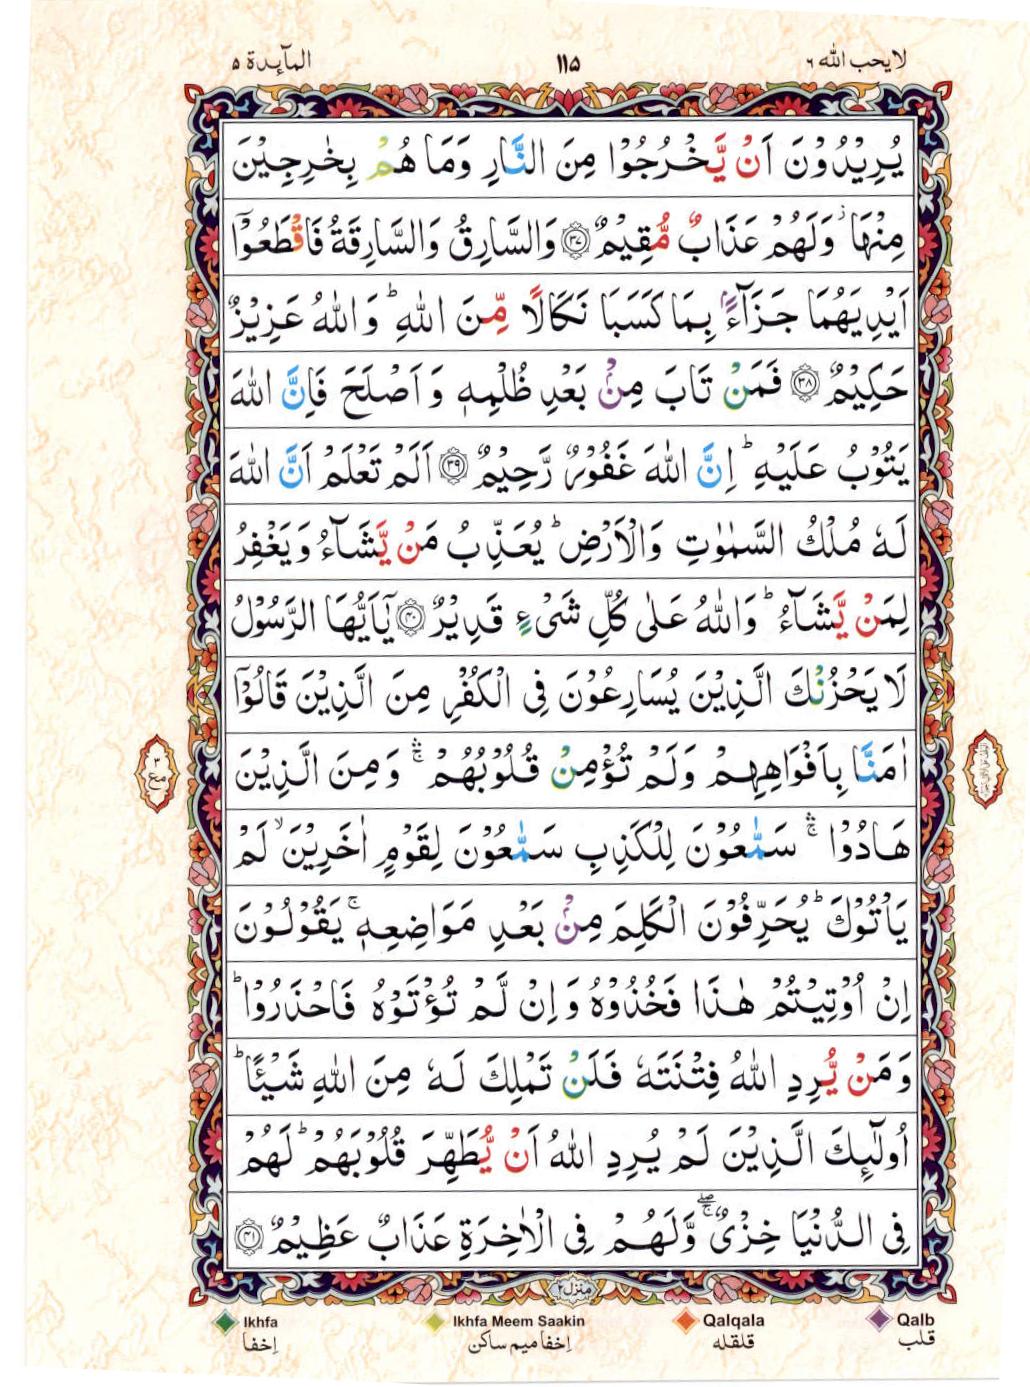 المآئدة ۵
۱۱۵
لا یحب الله ۶
یُرِیْدُوْنَ اَنْ یَّخْرُجُوْا مِنَ النَّارِ وَمَا هُمْ بِخٰرِجِیْنَ
مِنْهَا ؗ وَلَهُمْ عَذَابٌ مُّقِیْمٌ ﴿۳۷﴾ وَالسَّارِقُ وَالسَّارِقَةُ فَاقْطَعُوْۤا
اَیْدِیَهُمَا جَزَآءًۢ بِمَا كَسَبَا نَكَالًا مِّنَ اللّٰهِ ؕ وَاللّٰهُ عَزِیْزٌ
حَكِیْمٌ ﴿۳۸﴾ فَمَنْ تَابَ مِنْۢ بَعْدِ ظُلْمِهٖ وَاَصْلَحَ فَاِنَّ اللّٰهَ
یَتُوْبُ عَلَیْهِ ؕ اِنَّ اللّٰهَ غَفُوْرٌ رَّحِیْمٌ ﴿۳۹﴾ اَلَمْ تَعْلَمْ اَنَّ اللّٰهَ
لَهٗ مُلْكُ السَّمٰوٰتِ وَالْاَرْضِ ؕ یُعَذِّبُ مَنْ یَّشَآءُ وَیَغْفِرُ
لِمَنْ یَّشَآءُ ؕ وَاللّٰهُ عَلٰی كُلِّ شَیْءٍ قَدِیْرٌ ﴿۴۰﴾ یٰۤاَیُّهَا الرَّسُوْلُ
لَا یَحْزُنْكَ الَّذِیْنَ یُسَارِعُوْنَ فِی الْكُفْرِ مِنَ الَّذِیْنَ قَالُوْۤا
اٰمَنَّا بِاَفْوَاهِهِمْ وَلَمْ تُؤْمِنْ قُلُوْبُهُمْ ۛۚ وَمِنَ الَّذِیْنَ
هَادُوْا ۛۚ سَمّٰعُوْنَ لِلْكَذِبِ سَمّٰعُوْنَ لِقَوْمٍ اٰخَرِیْنَ ۙ لَمْ
یَاْتُوْكَ ؕ یُحَرِّفُوْنَ الْكَلِمَ مِنْۢ بَعْدِ مَوَاضِعِهٖ ۚ یَقُوْلُوْنَ
اِنْ اُوْتِیْتُمْ هٰذَا فَخُذُوْهُ وَاِنْ لَّمْ تُؤْتَوْهُ فَاحْذَرُوْا ؕ
وَمَنْ یُّرِدِ اللّٰهُ فِتْنَتَهٗ فَلَنْ تَمْلِكَ لَهٗ مِنَ اللّٰهِ شَیْـًٔا ؕ
اُولٰٓئِكَ الَّذِیْنَ لَمْ یُرِدِ اللّٰهُ اَنْ یُّطَهِّرَ قُلُوْبَهُمْ ؕ لَهُمْ
فِی الدُّنْیَا خِزْیٌ ۖۚ وَّلَهُمْ فِی الْاٰخِرَةِ عَذَابٌ عَظِیْمٌ ﴿۴۱﴾
۳ مع
منزل ۲
Ikhfa
Ikhfa Meem Saakin
Qalqala
Qalb
اِخفا
اِخفا میم ساکن
قلقله
قلب